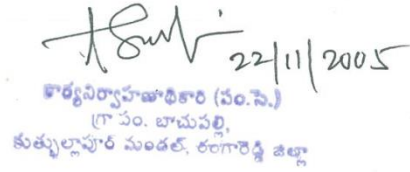 22/11/2005
కార్యనిర్వాహణాధికారి (పం.సె.)
గ్రా పం. బాచుపల్లి,
కుత్బుల్లాపూర్ మండల్, రంగారెడ్డి జిల్లా